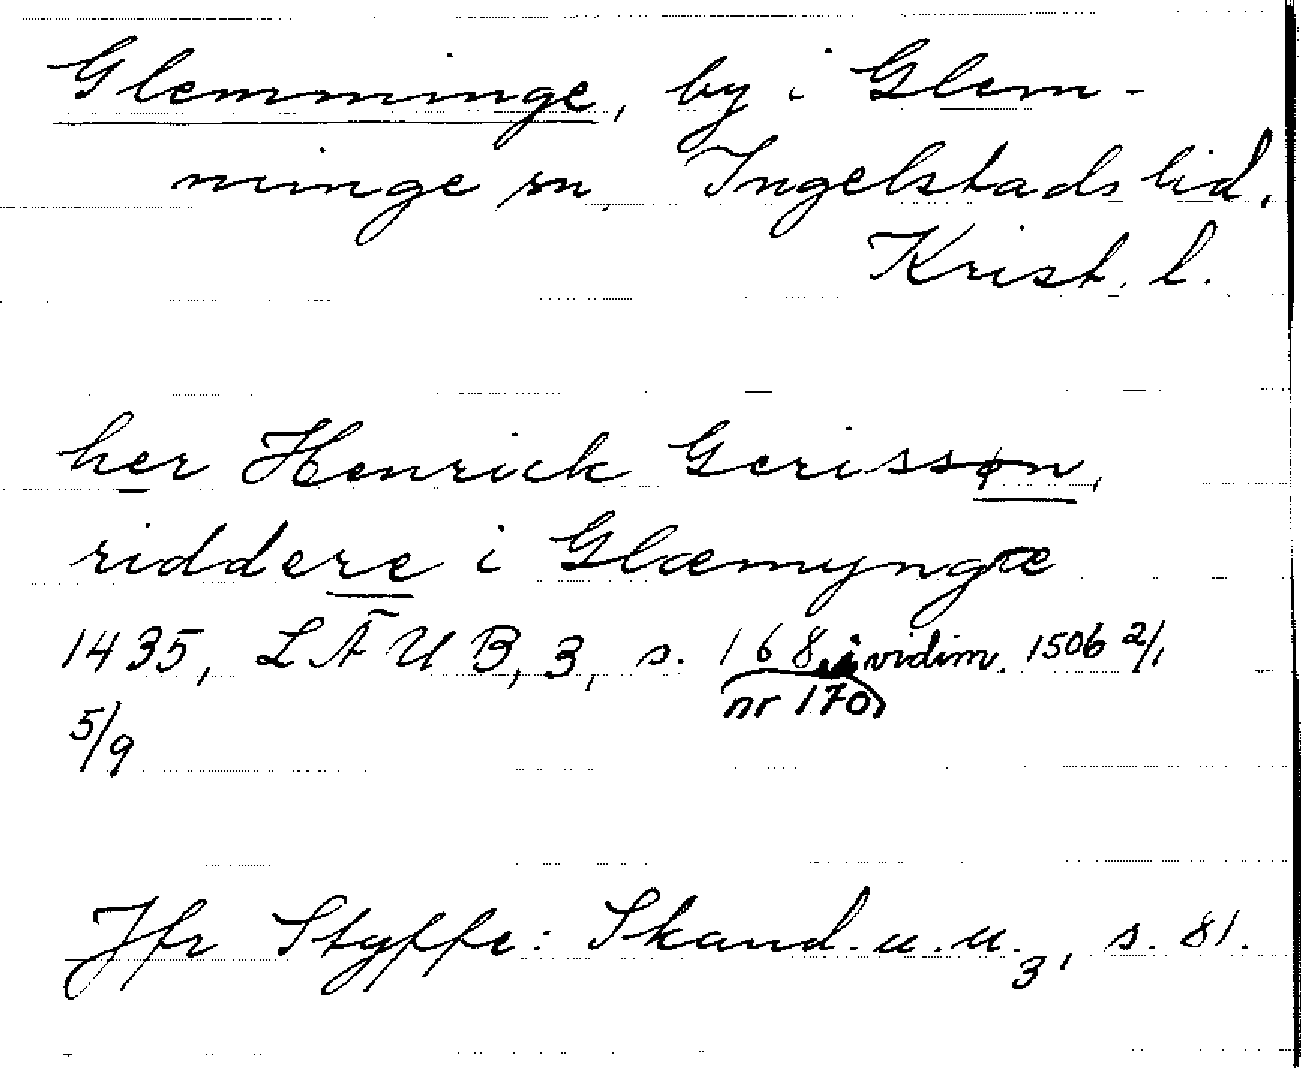 Glemminge, by i Glem-
minge sn. Ingelstads hd.
Krist. l.
her Henrick Gerissøn,
riddere i Glæmyngæ
1435, LÄUB, 3, s. 168, i vidim. 1506 2/1
nr 170
5/9
Jfr Styffe: Skand. u. u. 3, s. 81.